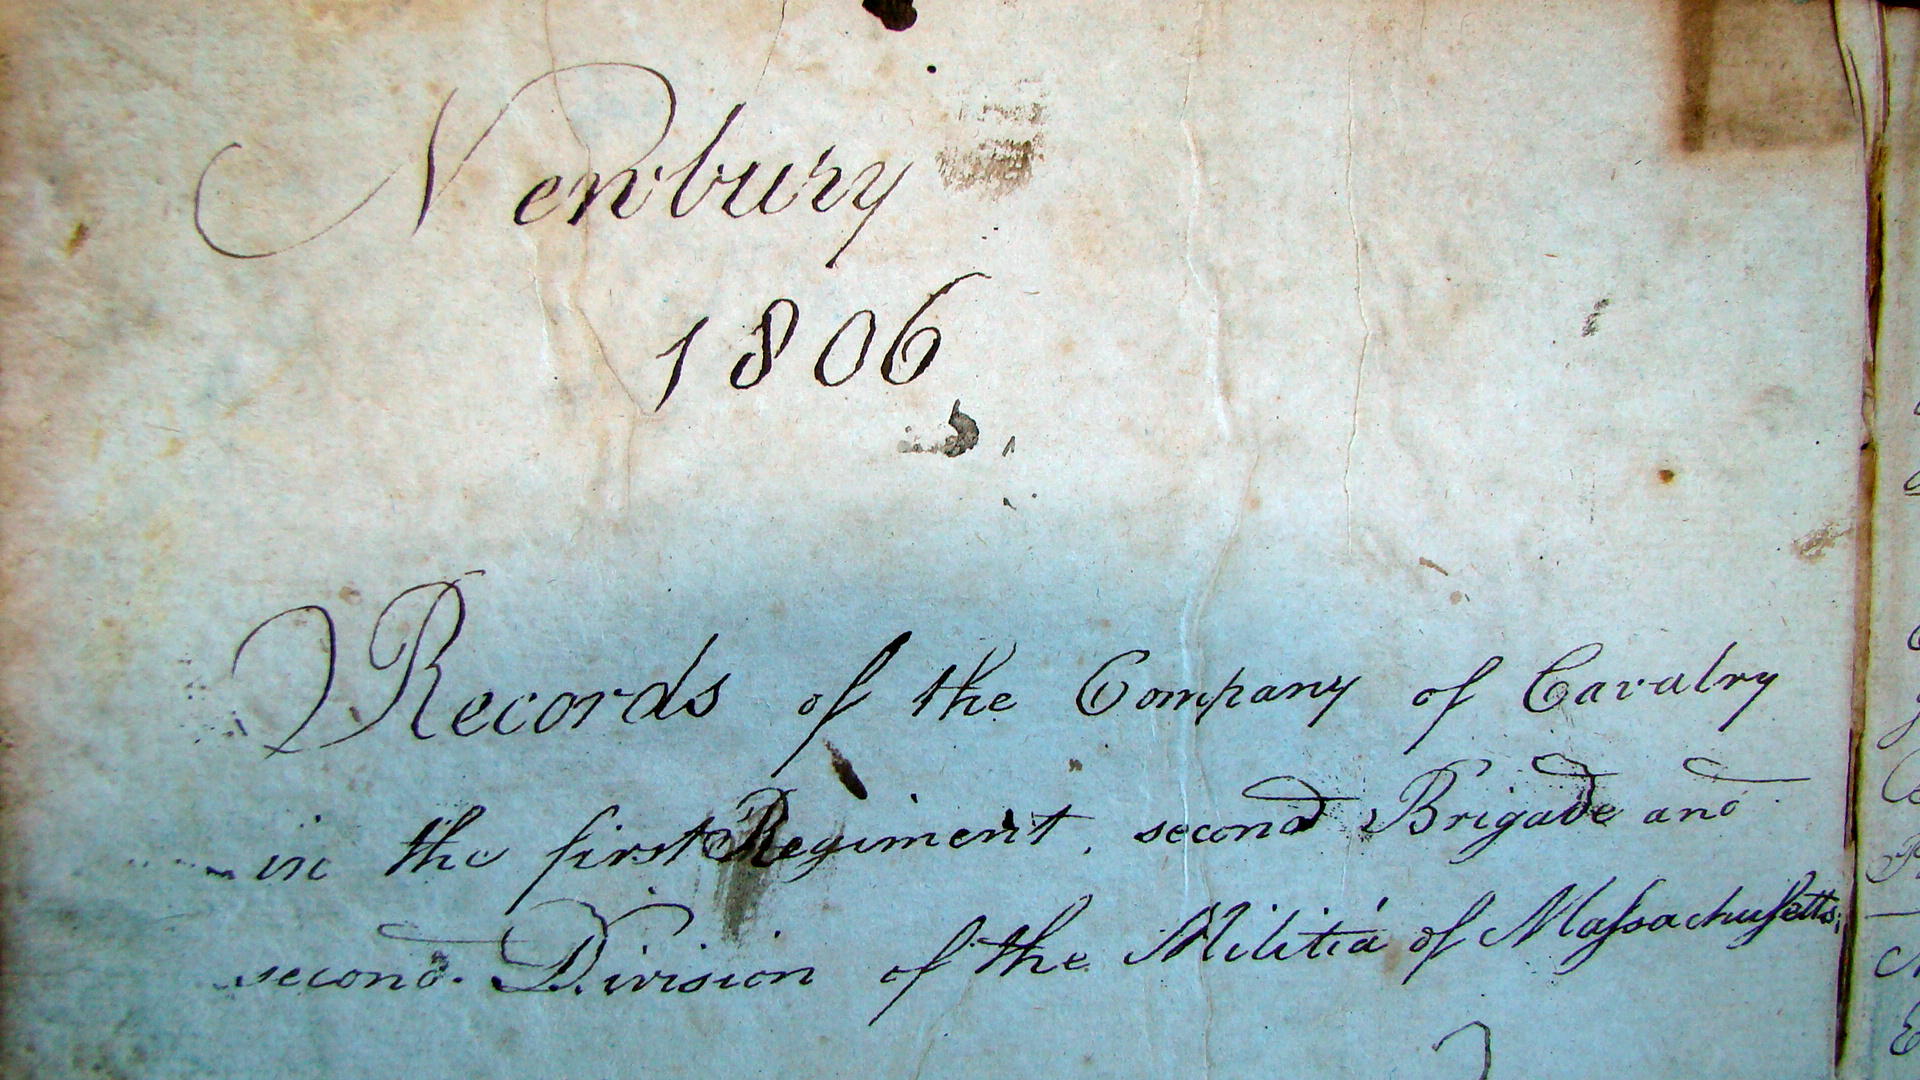 Newbury
1806
Records of the Company of Cavalry
in the first Regiment, second Brigade and
second Division of the Militia of Maſsachuſetts;